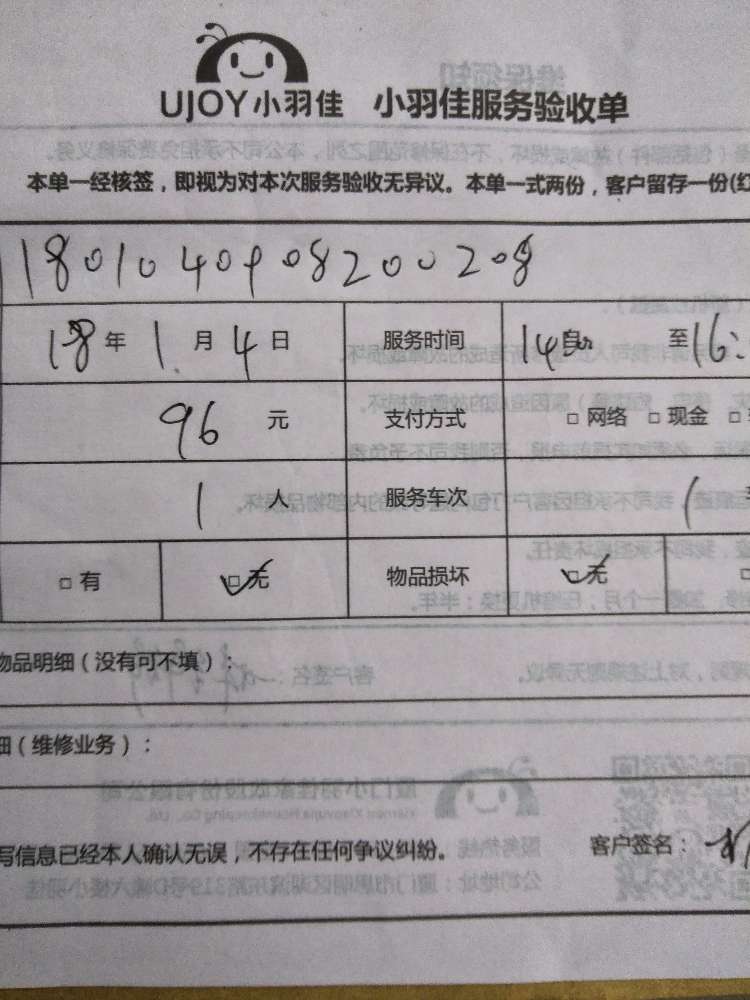 UJOY小羽佳 小羽佳服务验收单
本单一经核签，即视为对本次服务验收无异议。本单一式两份，客户留存一份(红
180104090820 0208
18年1月4日 服务时间 14 至16:
96元 支付方式 □ 网络 □ 现金 □
1人 服务车次 1
□ 有 □ 无 物品损坏 □ 无 □
物品明细（没有可不填）：
细（维修业务）：
写信息已经本人确认无误，不存在任何争议纠纷。 客户签名：